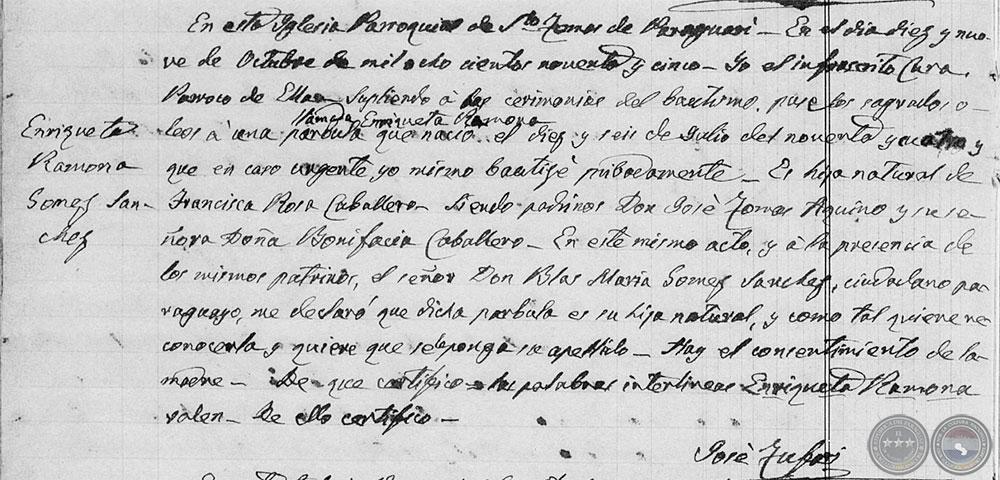 En esta Iglesia Parroquial de Sto Tomas de Paraguarí - En el dia diez y nue-
ve de Octubre de mil ocho cientos noventa y cinco - Yo el infrascrito Cura
Parroco de Ella - supliendo à las cerimonias del bautismo, puse los sagrados o-
llamada Enriqueta Ramona
leos à una parbula que nació el diez y seis de Julio del noventa y cuatro y
que en caso urgente yo mismo bautizè privadamente - Es hija natural de
Francisca Rosa Caballero - Siendo padrinos Don José Tomas Aquino y su se-
ñora Doña Bonifacia Caballero - En este mismo acto, y à la presencia de
los mismos patrinos, el señor Don Blas Maria Gomez Sanchez, ciudadano pa-
raguayo, me declaró que dicha parbula es su hija natural, y como tal quiere re-
conocerla y quiere que se le ponga su apellido - Hay el consentimiento de la
madre - De que certifico - las palabras interlineas Enriqueta Ramona
valen - De ello certifico -
Enriqueta
Ramona
Gomez San-
chez
José